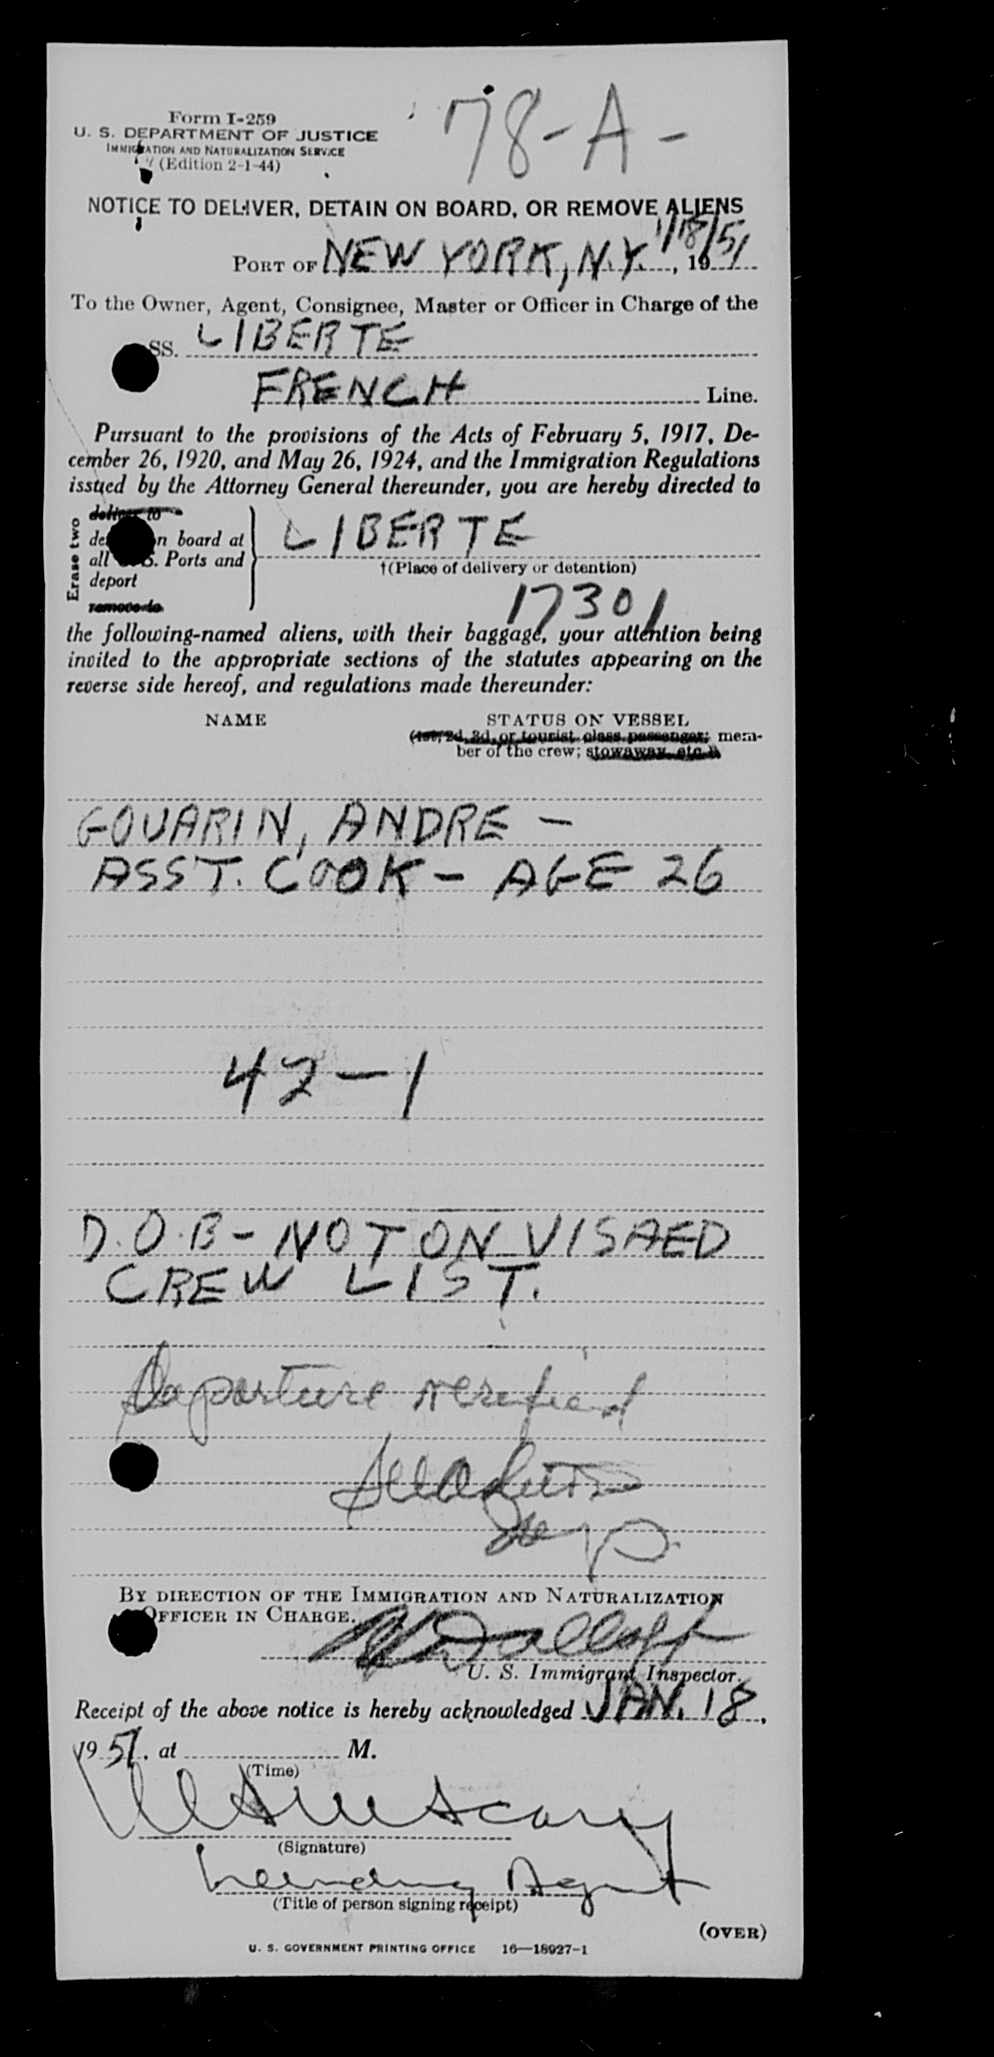 Form I-259
78-A-
U. S. DEPARTMENT OF JUSTICE
IMMIGRATION AND NATURALIZATION SERVICE
(Edition 2-1-44)
NOTICE TO DELIVER, DETAIN ON BOARD, OR REMOVE ALIENS
PORT OF NEW YORK, N.Y. 1/18/51, 19
To the Owner, Agent, Consignee, Master or Officer in Charge of the
SS. LIBERTE
FRENCH Line.
Pursuant to the provisions of the Acts of February 5, 1917, De-
cember 26, 1920, and May 26, 1924, and the Immigration Regulations
issued by the Attorney General thereunder, you are hereby directed to
Erase two
deliver to
n board at LIBERTE
all S. Ports and
†(Place of delivery or detention)
deport
remove to
17301
the following-named aliens, with their baggage, your attention being
invited to the appropriate sections of the statutes appearing on the
reverse side hereof, and regulations made thereunder:
NAME STATUS ON VESSEL
(1st, 2d, 3d, or tourist class passenger; mem-
ber of the crew; stowaway, etc.)
GOUARIN, ANDRE -
ASST. COOK - AGE 26
42-1
D.O.B - NOT ON VISAED
CREW LIST.
Departure verified
BY DIRECTION OF THE IMMIGRATION AND NATURALIZATION
OFFICER IN CHARGE.
U. S. Immigrant Inspector.
Receipt of the above notice is hereby acknowledged JAN. 18,
1951, at M.
(Time)
(Signature)
Agent
(Title of person signing receipt)
(OVER)
U. S. GOVERNMENT PRINTING OFFICE 16—18927-1